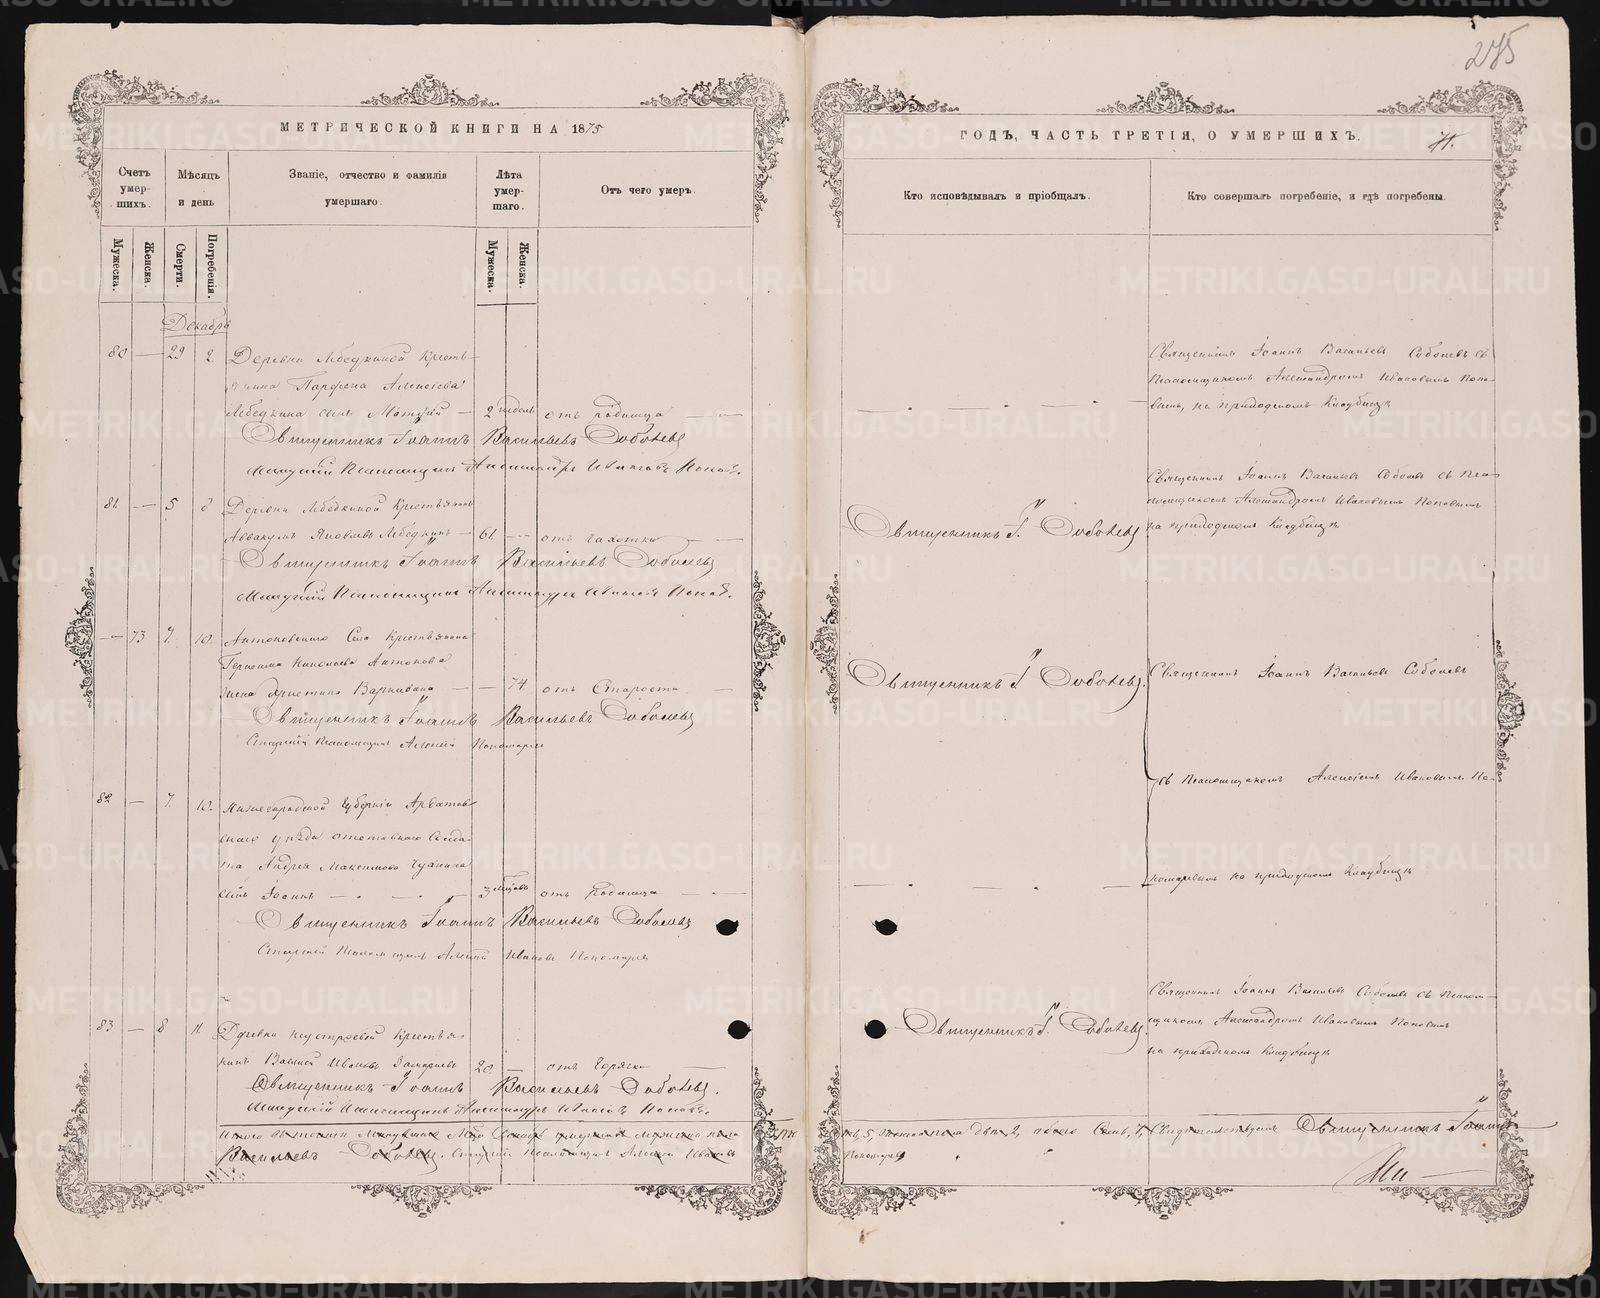 275
МЕТРИЧЕСКОЙ КНИГИ НА 1875
ГОДЪ, ЧАСТЬ ТРЕТІЯ, О УМЕРШИХЪ.
Счетъ умер- шихъ.
Мѣсяцъ и день
Званіе, отчество и фамилія умершаго.
Лѣта умер- шаго.
Отъ чего умеръ.
Кто исповѣдывалъ и пріобщалъ.
Кто совершалъ погребеніе, и гдѣ погребены.
Мужеска.
Женска.
Смерти.
Погребенія.
Мужеска.
Женска.
Декабрь
80 — 29 2 Деревни Лебедкиной Кресть-
янина Парфена Алексѣева
Лебедкина сынъ — 2 недѣл отъ родимца
Священникъ Іоаннъ Васильевъ Соболевъ
Младшій Псаломщикъ Александръ Ивановъ Поповъ.
Священникъ Іоаннъ Васильевъ Соболевъ съ
Псаломщикомъ Александромъ Ивановымъ Попо-
вымъ, на приходскомъ Кладбищѣ
81 — 5 8 Деревни Лебедкиной Крестьянинъ
Аввакумъ Яковлевъ Лебедкинъ — 61 — отъ чахотки
Священникъ Іоаннъ Васильевъ Соболевъ
Младшій Псаломщикъ Александръ Ивановъ Поповъ.
Священникъ І. Соболевъ
Священникъ Іоаннъ Васильевъ Соболевъ съ Пса-
ломщикомъ Александромъ Ивановымъ Поповымъ
на приходскомъ Кладбищѣ
— 73 7. 10. Антоновскаго Села Крестьянина
Николаева Антонова
жена Христина — — 74 отъ Старости —
Священникъ Іоаннъ Васильевъ Соболевъ
Старшій Псаломщикъ Алексій Пономаревъ
Священникъ І Соболевъ.
Священникъ Іоаннъ Васильевъ Соболевъ
82 — 7. 10. Нижегородской Губерніи Ардатов-
скаго уѣзда отставнаго Солда-
та Андрея Максимова
сынъ Іоаннъ — 3 мѣсяцовъ отъ Родимца
Священникъ Іоаннъ Васильевъ Соболевъ
Старшій Псаломщикъ Алексій Ивановъ Пономаревъ
съ Псаломщикомъ Алексіемъ Ивановымъ По-
номаревымъ на приходскомъ Кладбищѣ
83 — 8 11. Деревни Крестья-
нинъ Василій Ивановъ 20 — отъ Горячки
Священникъ Іоаннъ Васильевъ Соболевъ.
Младшій Псаломщикъ Александръ Ивановъ Поповъ.
Священникъ І. Соболевъ
Священникъ Іоаннъ Васильевъ Соболевъ съ Псалом-
щикомъ Александромъ Ивановымъ Поповымъ
на приходскомъ Кладбищѣ
Итого въ Декабрѣ умершихъ мужеска пола
5, женска пола двѣ, 2, обоего Семь, 7, Свидѣтельствуемъ Священникъ Іоаннъ
Васильевъ Соболевъ. Старшій Псаломщикъ Алексій Ивановъ
Пономаревъ
METRIKI.GASO-URAL.RU